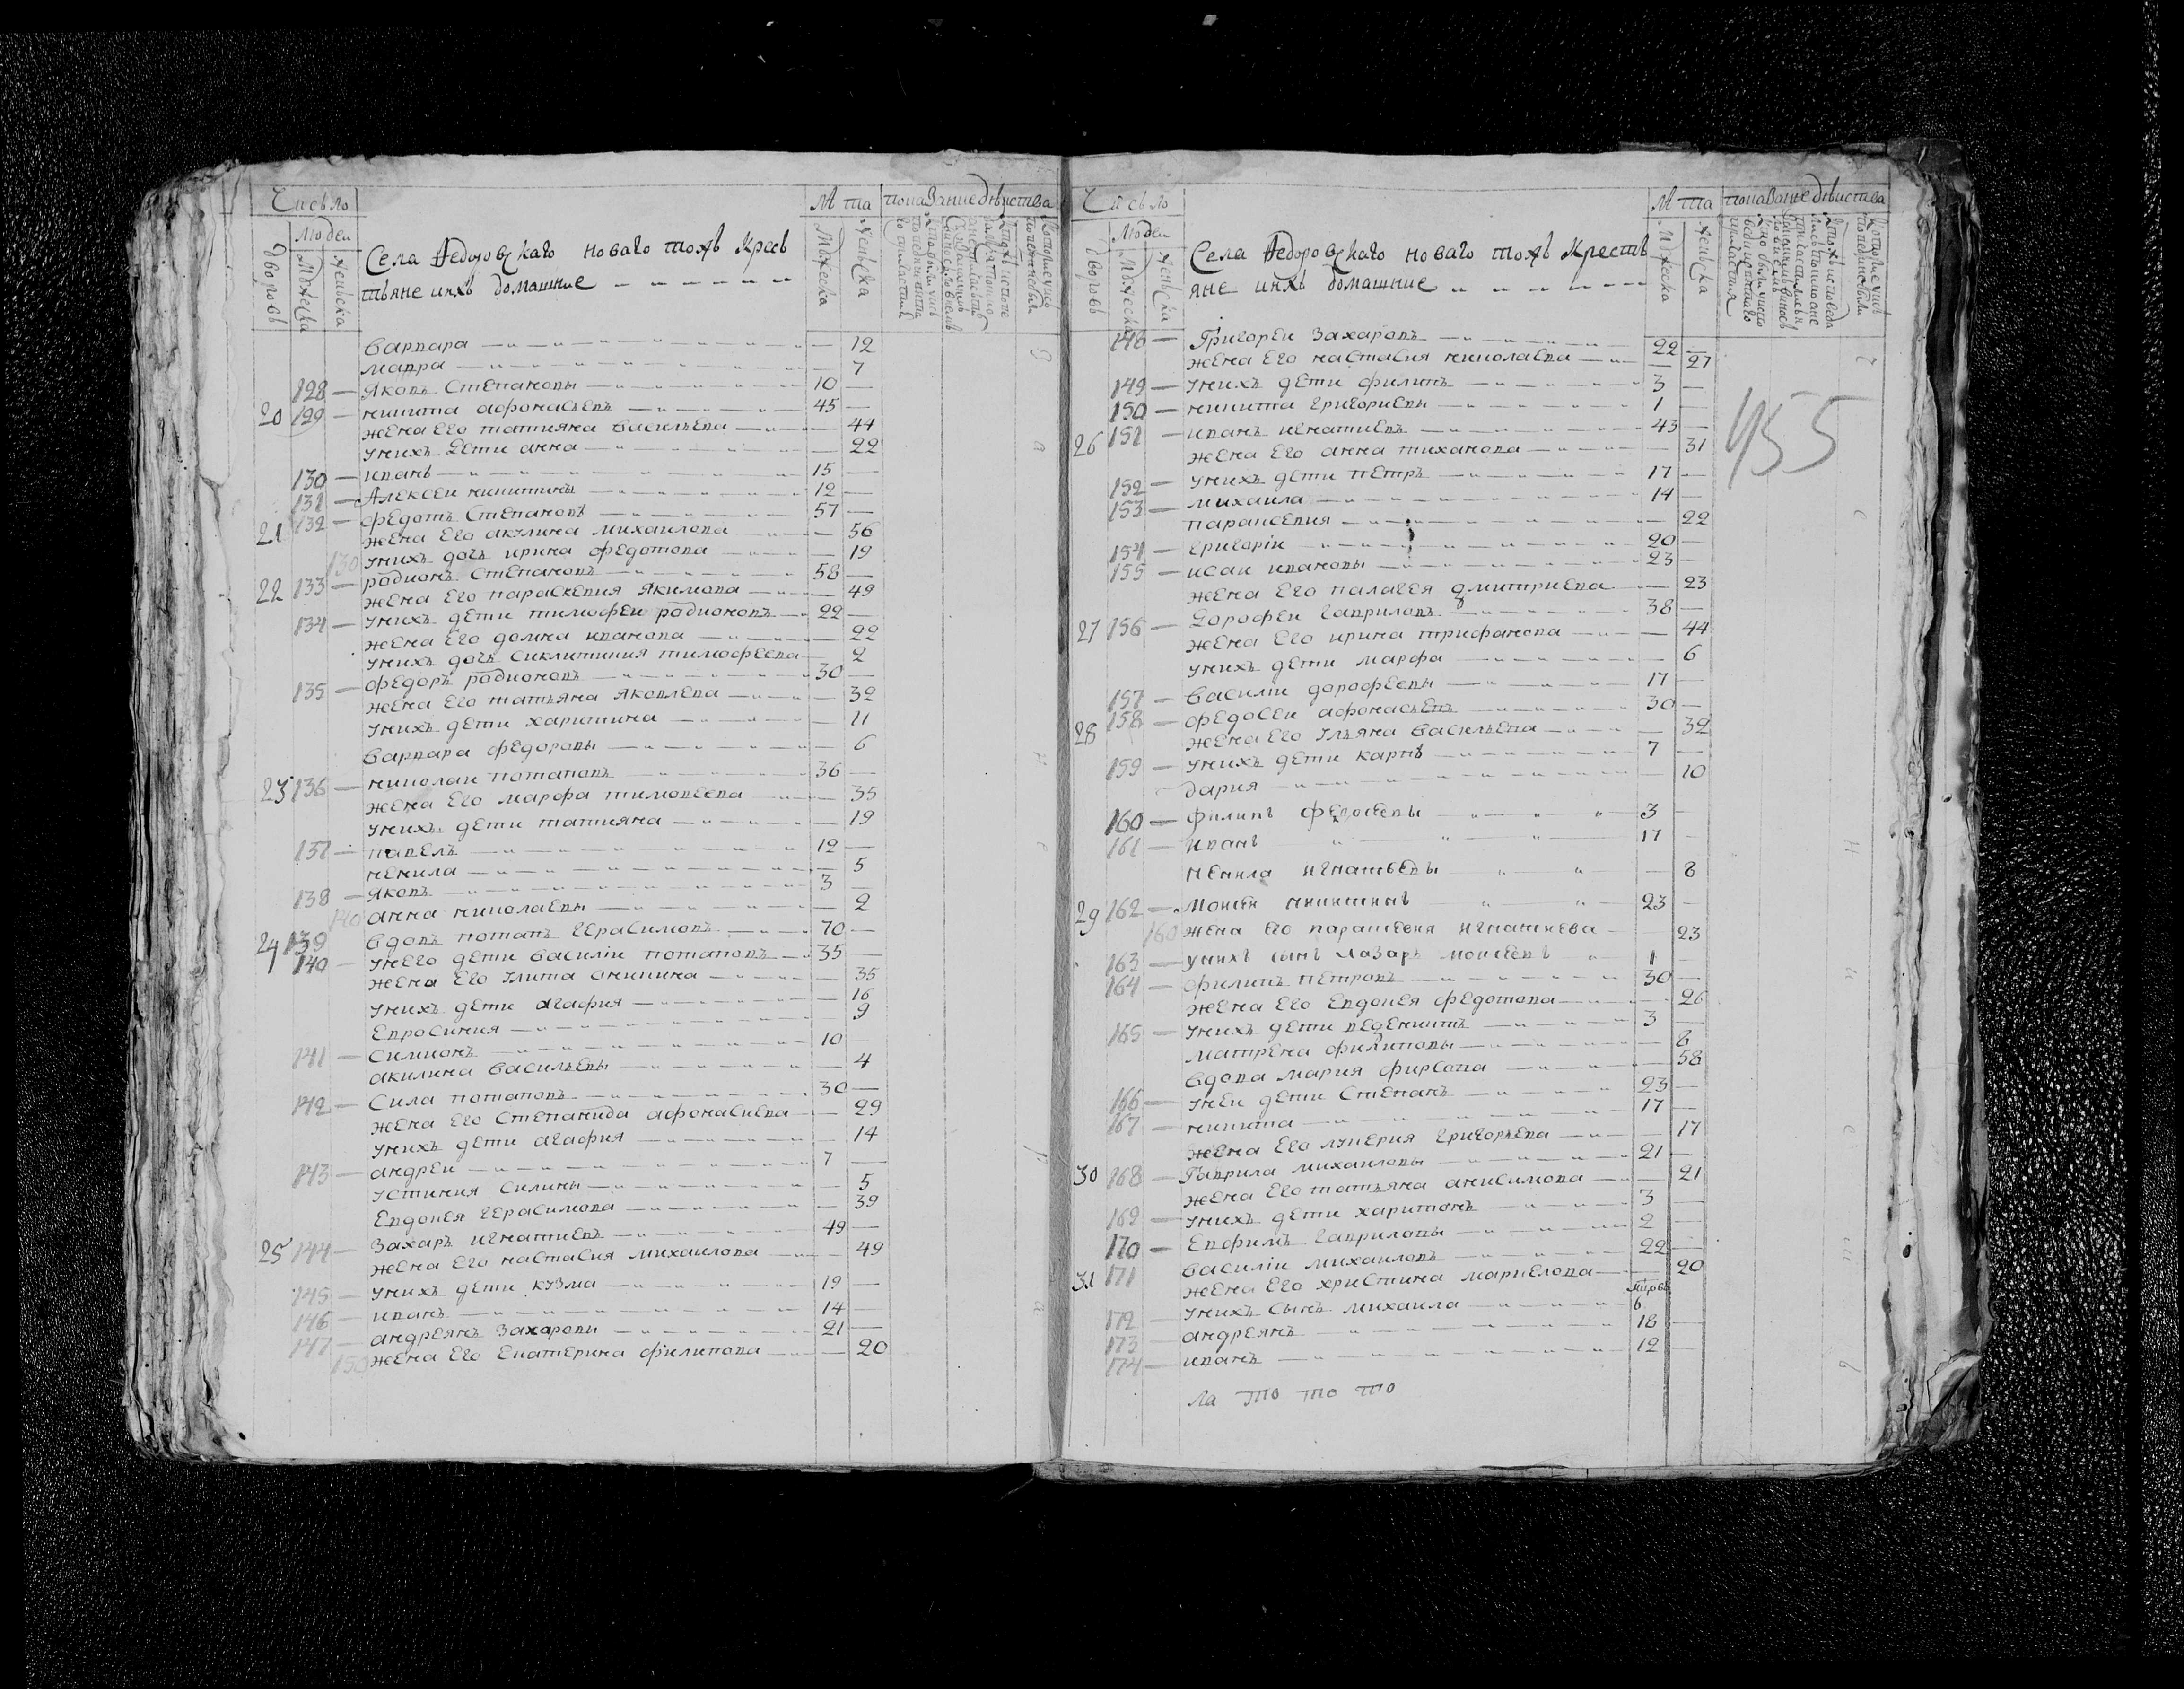 Число
Людей
дворовъ
мужеска
женьска
Села Ѳедоровскаго новаго тожъ кресь
тьяне ихъ домашние
Лѣта
мужеска
женьска
варвара — 12
мавра — 7
128 — яковъ степановы 10 —
20 129 — никита афонасьевъ 45 —
жена его татияна васильева — 44
у нихъ дети анна — 22
130 — иванъ 15 —
131 — Алексеи никитины 12 —
21 132 — федотъ степановъ 57 —
жена его акулина михаилова — 56
130 у нихъ дочь ирина федотова — 19
22 133 — родионъ степановъ 58 —
жена его параскевия якимова — 49
134 — у нихъ дети тимофеи родионовъ 22 —
жена его домна иванова — 22
у нихъ дочь сиклитиния тимофеева — 2
135 — федоръ родионовъ 30 —
жена его татьяна яковлева — 32
у нихъ дети харитина — 11
варвара федоровы — 6
23 136 — николаи потаповъ 36 —
жена его марфа тимовеева — 35
у нихъ дети татияна — 19
137 — павелъ 12 —
ненила — 5
138 — яковъ 3 —
140 анна николаевы — 2
24 139 вдовъ потапъ герасимовъ 70 —
140 — у него дети василiи потаповъ 35 —
жена его улита аникина — 35
у нихъ дети агафия — 16
евросиния — 9
141 — симионъ 10 —
акилина васильевы — 4
142 — сила потаповъ 30 —
жена его степанида афонасиева — 29
у нихъ дети агафия — 14
143 — андреи 7 —
устиния силины — 5
евдокея герасимова — 39
25 144 — захаръ игнатиевъ 49 —
жена его настасия михаилова — 49
145 — у нихъ дети кузма 19 —
146 — иванъ 14 —
147 — андреянъ захаровы 21 —
150 жена его екатерина филипова — 20
Число
Людей
дворовъ
мужеска
женьска
Села Ѳедоровскаго новаго тожъ крестъ
яне ихъ домашние
Лѣта
мужеска
женьска
148 — Григореи Захаровъ 22 —
жена его настасия николаева — 27
149 — у нихъ дети филипъ 3 —
150 — никита григориевы 1 —
455
26 151 — иванъ игнатиевъ 43 —
жена его анна тиханова — 31
152 — у нихъ дети петръ 17 —
153 — михаила 14 —
параскевия — 22
154 — григорiи 20 —
155 — исаи ивановы 23 —
жена его палагея дмитриева — 23
27 156 — дорофеи гавриловъ 38 —
жена его ирина трифанова — 44
у нихъ дети марфа — 6
157 — василiи дорофеевы 17 —
28 158 — федосеи афонасьевъ 30 —
жена его ульяна васильева — 32
159 — у нихъ дети карпъ 7 —
дария — 10
160 — филипъ федосеевы 3 —
161 — иванъ 17 —
ненила игнатьевы — 8
29 162 — Моисеи никитинъ 23 —
160 жена его парасковия игнатиева — 23
163 — у нихъ сынъ лазарь моисеевъ 1 —
164 — филипъ петровъ 30 —
жена его евдокея федотова — 26
165 — у нихъ дети веденитъ 3 —
матрена филиповы — 8
вдова мария фирсова — 58
166 — у неи дети степанъ 23 —
167 — никита 17 —
жена его лукерия григорьева — 17
30 168 — Гаврила михаиловы 21 —
жена его татьяна анисимова — 21
169 — у нихъ дети харитонъ 3 —
170 — евфимъ гавриловы 2 —
31 171 василiи михаиловъ 22 —
жена его христина маркелова — 20
172 — у нихъ сынъ михаила 6
173 — андреянъ 18 —
174 — иванъ 12 —
ла то то то